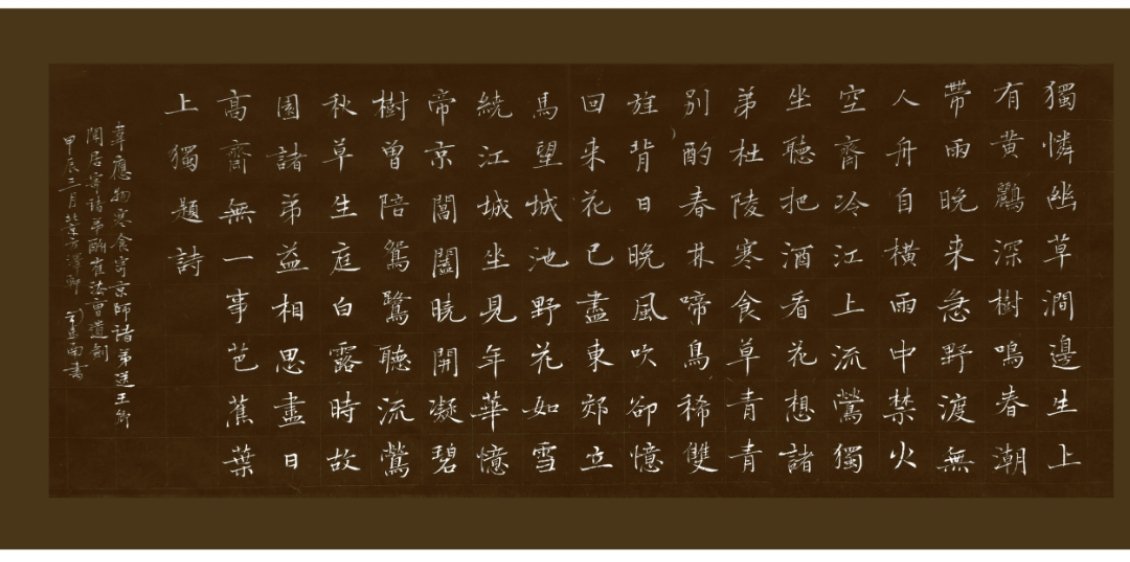 獨憐幽草澗邊生上
有黃鸝深樹鳴春潮
帶雨晚来急野渡無
人舟自橫雨中禁火
空齋冷江上流鶯獨
坐聽把酒看花想諸
弟杜陵寒食草青青
別酌春林啼鳥稀雙
旌背日晚風吹卻憶
回来花已盡東郊立
馬望城池野花如雪
繞江城坐見年華憶
帝京閶闔曉開凝碧
樹曾陪鴛鷺聽流鶯
秋草生庭白露時故
園諸弟益相思盡日
高齋無一事芭蕉葉
上獨題詩
韋應物寒食寄京師諸弟送王卿
閒居寄諸弟酬崔法曹道劍
甲辰三月書